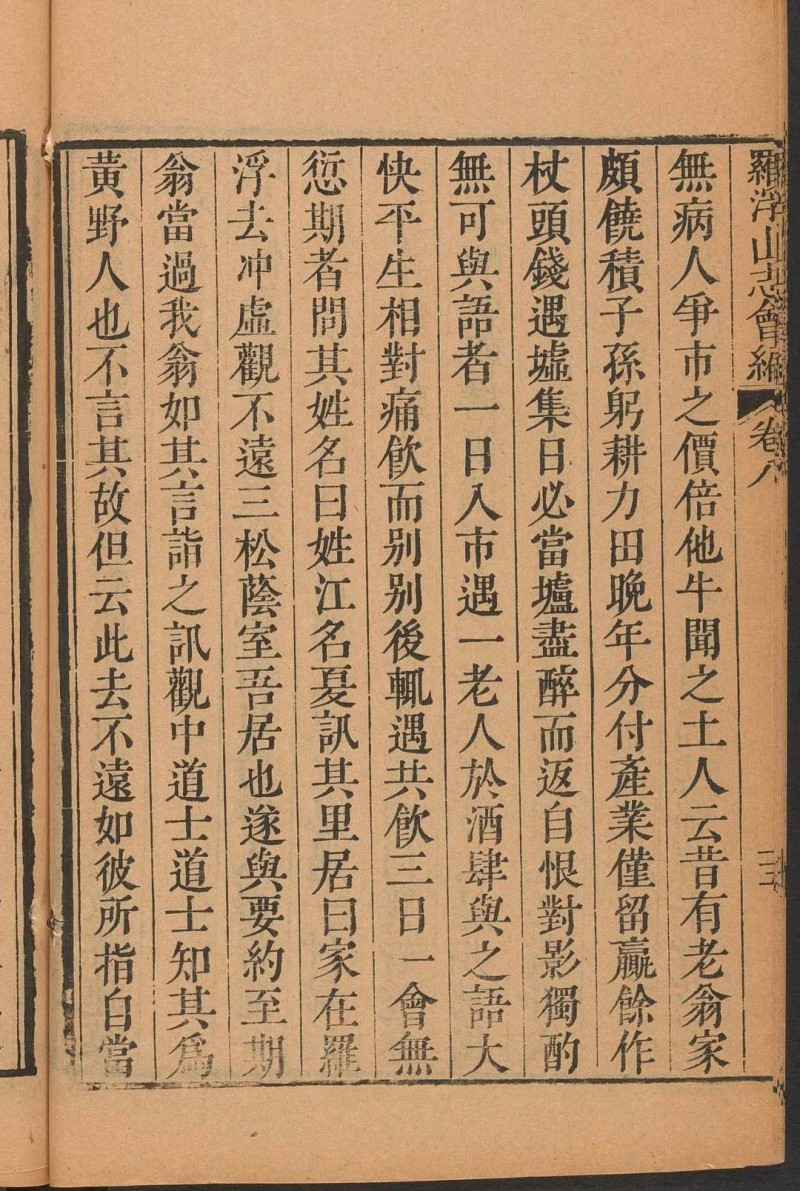 羅浮山志會編 卷八
無病人爭市之價倍他牛聞之土人云昔有老翁家
頗饒積子孫躬耕力田晚年分付產業僅留贏餘作
杖頭錢遇墟集日必當壚盡醉而返自恨對影獨酌
無可與語者一日入市遇一老人於酒肆與之語大
快平生相對痛飲而别别後輒遇共飲三日一會無
愆期者問其姓名曰姓江名戞訊其里居曰家在羅
浮去冲虛觀不遠三松蔭室吾居也遂與要約至期
翁當過我翁如其言詣之訊觀中道士道士知其爲
黃野人也不言其故但云此去不遠如彼所指自當